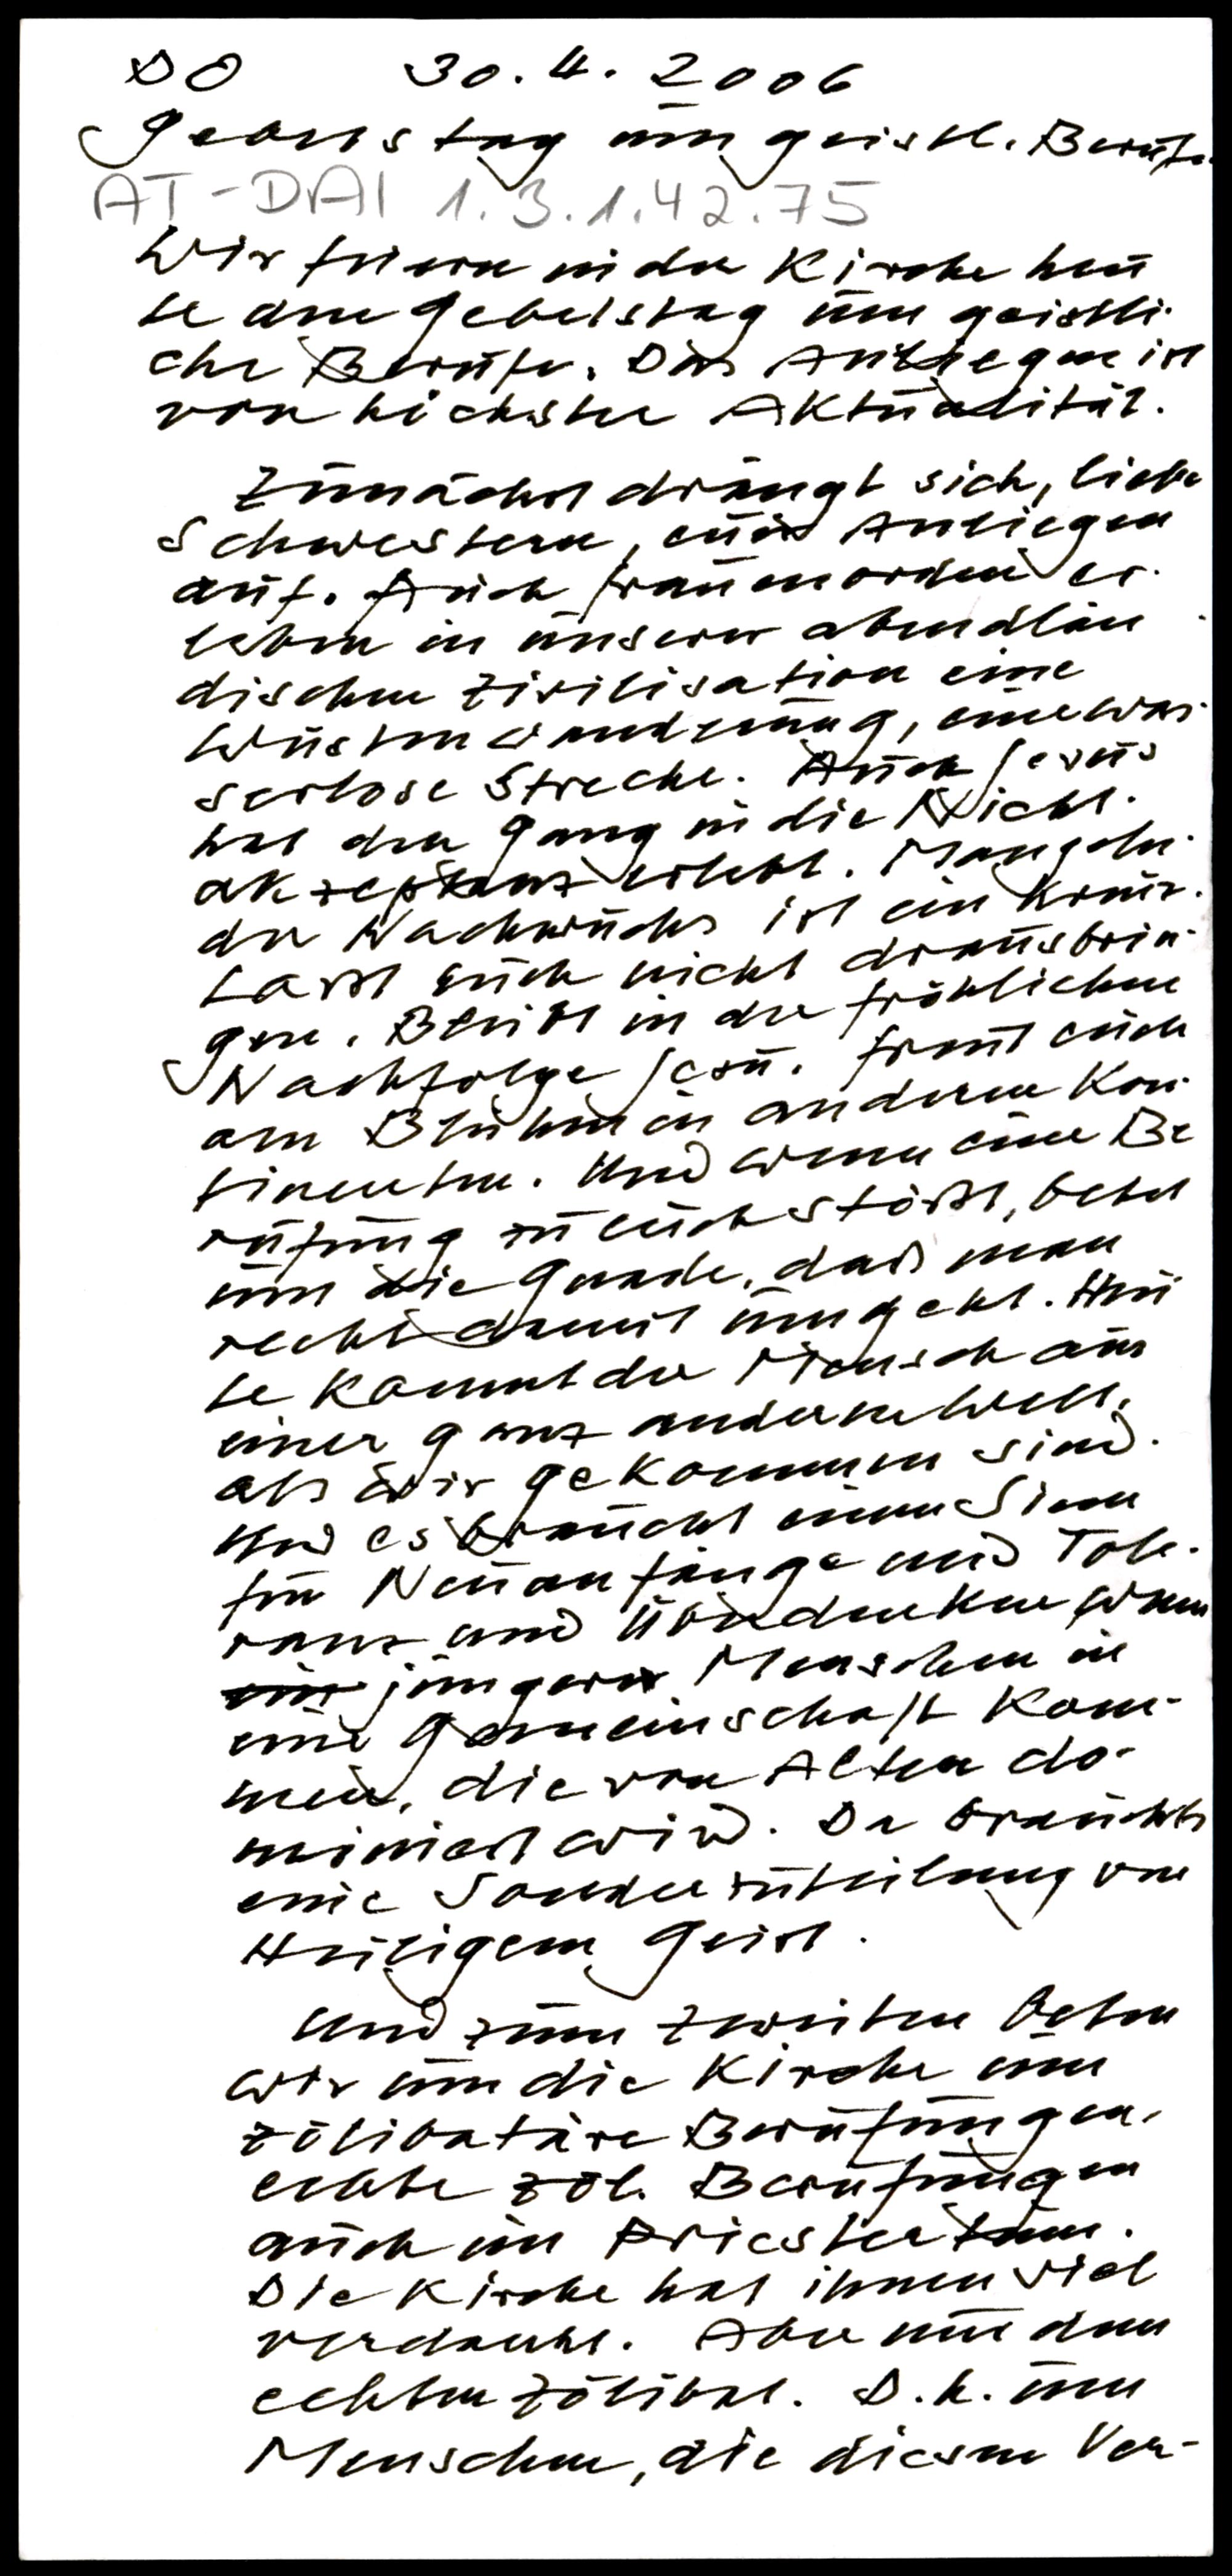 DO 30. 4. 2006
Gebetstag um geistl. Berufe.
AT-DAI 1.3.1.42.75
Wir feiern in der Kirche heu
te den Gebetstag um geistli-
che Berufe. Das Anliegen ist
von höchster Aktualität.
Zunächst drängt sich, liebe
Schwestern, ein Anliegen
auf. Auch Frauenorden er-
leben in unserer abendlän
dischen Zivilisation eine
Wüstenwanderung, eine was-
serlose Strecke. Auch Jesus
hat den Gang in die Nicht-
akzeptanz erlebt. Mangeln-
der Nachwuchs ist ein Kreuz.
Lasst euch nicht drausbrin-
gen. Bleibt in der fröhlichen
Nachfolge Jesu. Freut euch
am Blühen in anderen Kon-
tinenten. Und wenn eine Be
rufung zu euch stößt, betet
um die Gnade, daß man
recht damit umgeht. Heu
te kommt der Mensch aus
einer ganz anderen Welt,
als wir gekommen sind.
Und es braucht einen Sinn
für Neuanfänge und Tole-
ranz und Überdenken, wenn
ein jüngere Menschen in
eine Gemeinschaft kom-
men, die von Alten do-
miniert wird. Da brauchts
eine Sonderzuteilung von
Heiligem Geist.
Und zum zweiten beten
wir um die Kirche um
zölibatäre Berufungen,
echte zöl. Berufungen
auch im Priestertum.
Die Kirche hat ihnen viel
verdankt. Aber nur dem
echten Zölibat. D.h. um
Menschen, die diesen Ver-